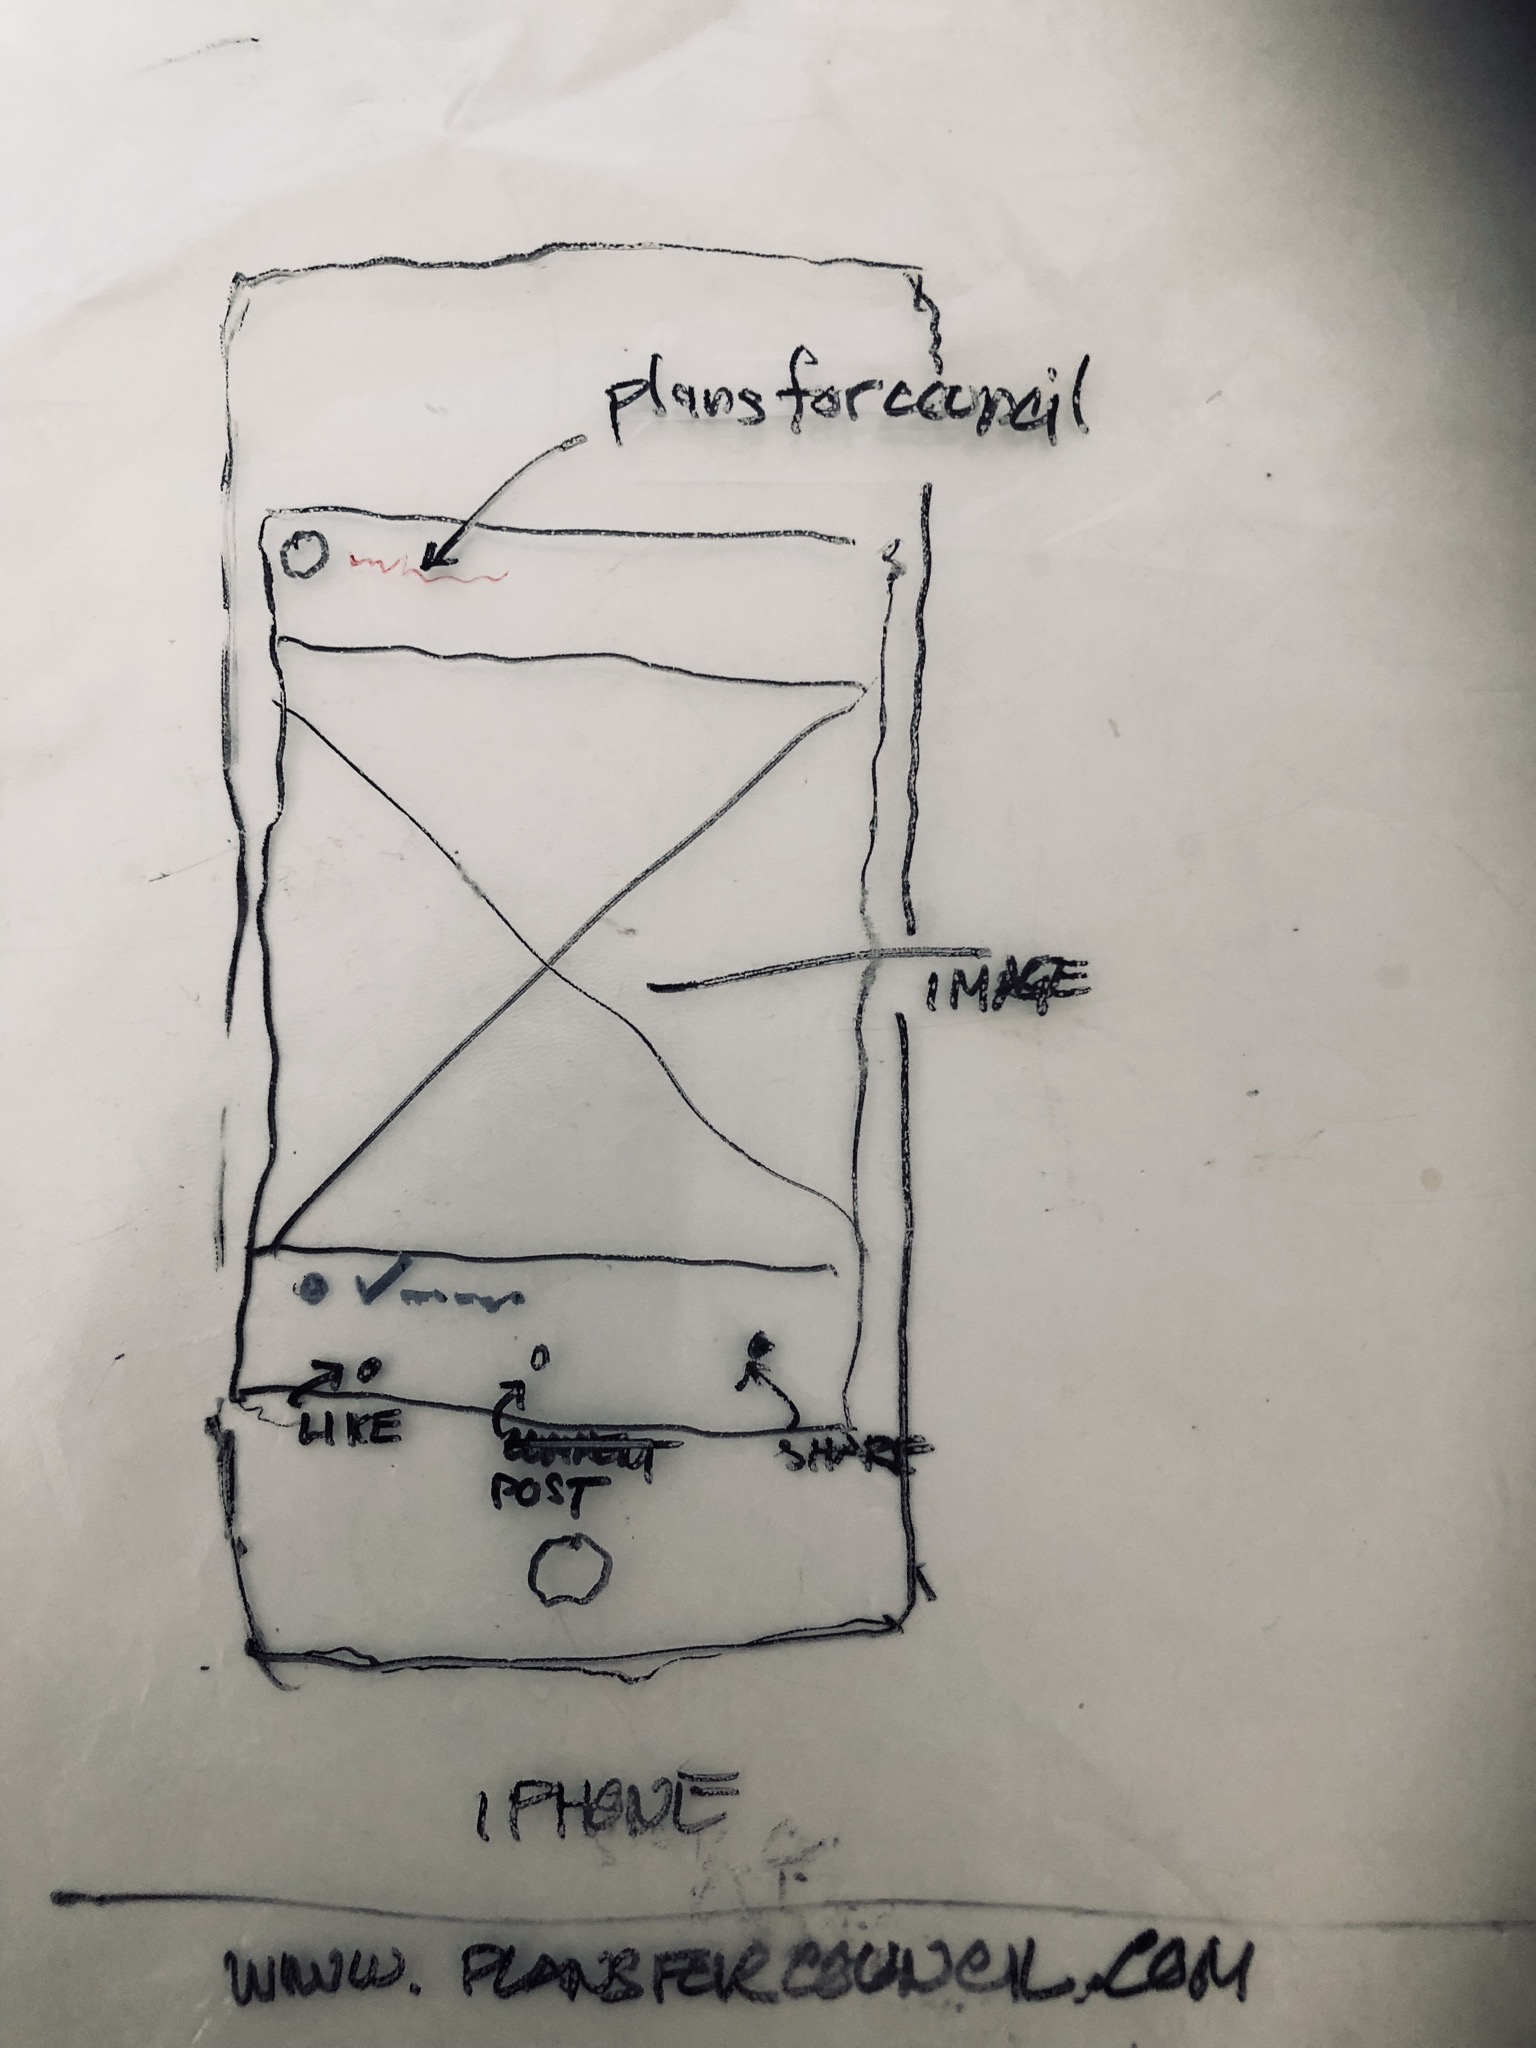 plansforcouncil
IMAGE
LIKE
POST
SHARE
IPHONE
WWW.PLANSFORCOUNCIL.COM